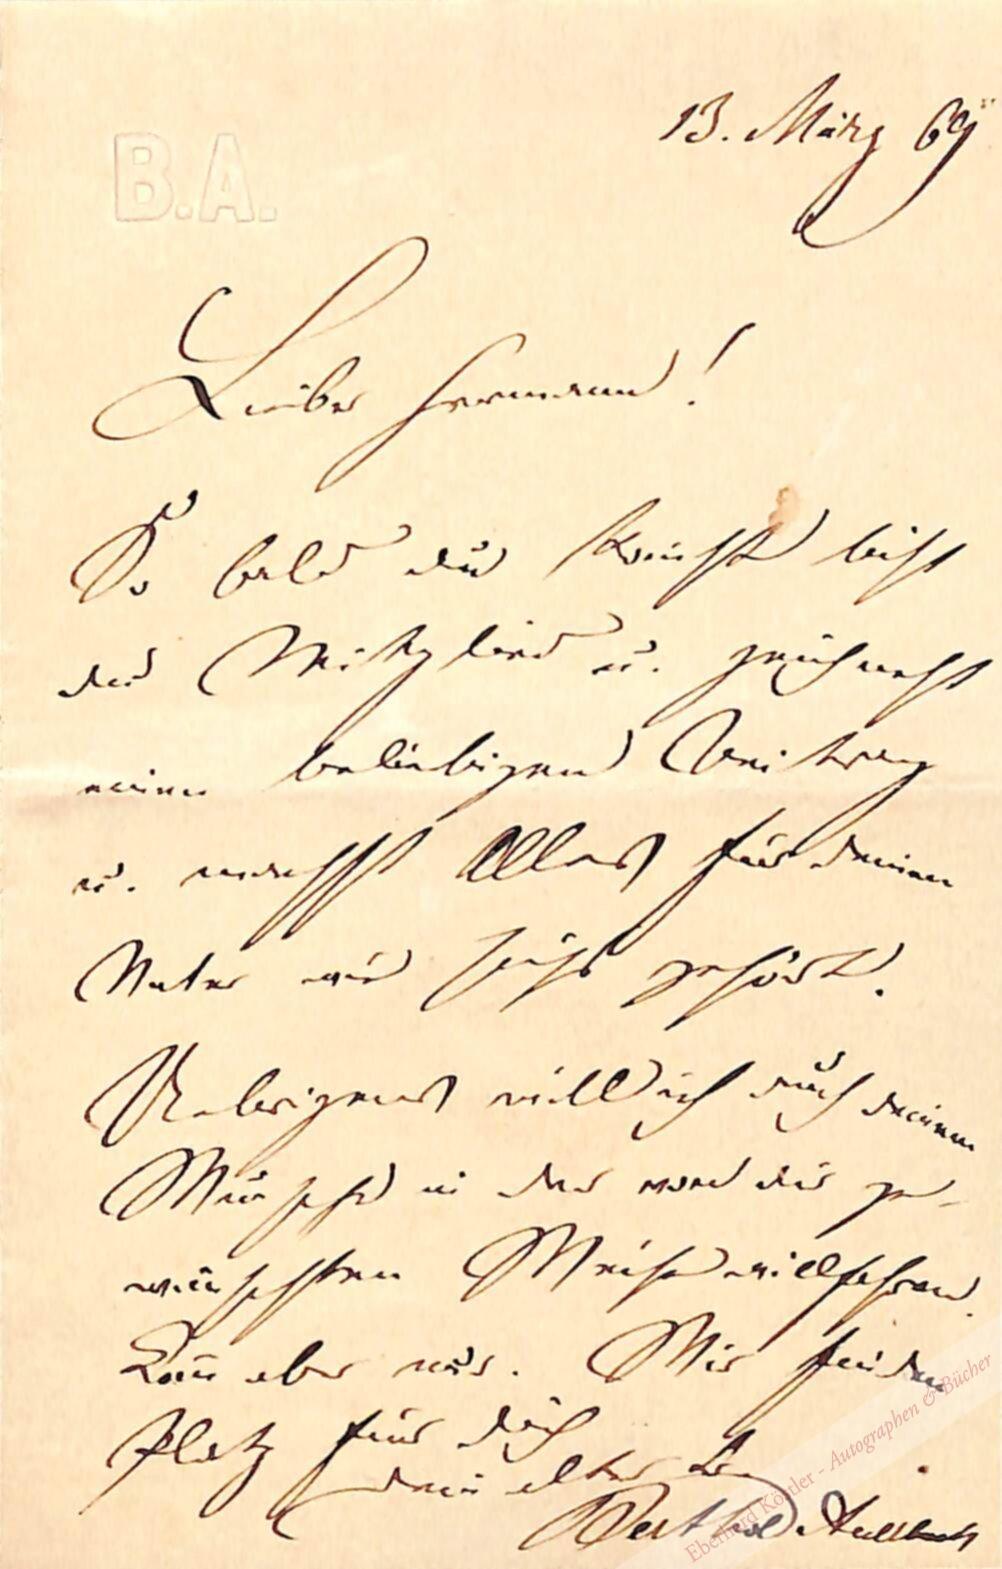 B.A.
13. März 69
Lieber Hermann!
So bald du kommst bist
du Mitglied u. zeichnest
einen beliebigen Beitrag
u. machst Alles für deinen
Vater wie sichs gehört.
Uebrigens will ich auch deinem
Wunsche in der von dir ge-
wünschten Weise willfahren.
Kom̅ aber nur. Wir finden
Platz für dich
dein alter
Berthold Auerbach
Eberhard Köstler - Autographen & Bücher